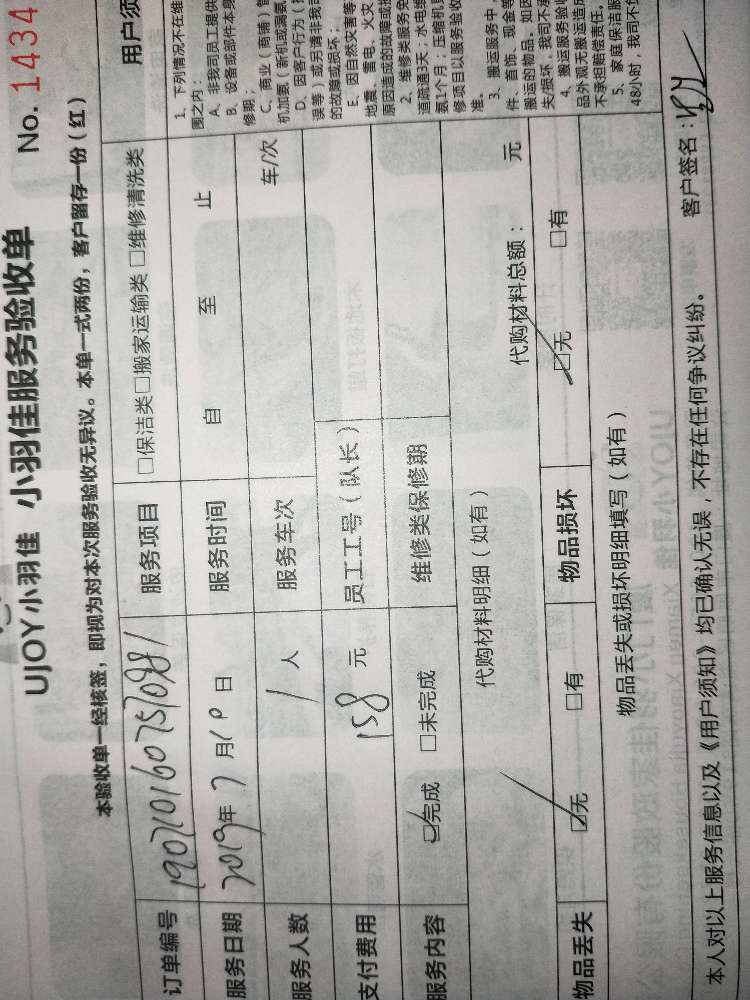 UJOY小羽佳 小羽佳服务验收单 No. 1434
本验收单一经核签，即视为对本次服务验收无异议。本单一式两份，客户留存一份（红）
订单编号 服务项目 □保洁类□搬家运输类 □维修清洗类 用户须
服务日期 2019年 7月10日 服务时间 自 至 止
服务人数 1人 服务车次 车/次
支付费用 158 元 员工工号（队长）
服务内容 ☑完成 □未完成 维修类保修期
代购材料明细（如有） 代购材料总额： 元
物品丢失 ☑无 □有 物品损坏 ☑无 □有
物品丢失或损坏明细填写（如有）
本人对以上服务信息以及《用户须知》均已确认无误，不存在任何争议纠纷。 客户签名：
1、下列情况不在维
围之内：
A、非我司员工提供
B、设备或部件本身
修期；
C、商业（商铺）首
机加氨（新机或漏氨
D、因客户行为（
误等）或另请非我司
的故障或损坏；
E、因自然灾害等
地震、雷电、火灾
原因造成的故障或损
2、维修类服务免
道疏通3天；水电维
氨1个月；压缩机
修项目以服务验收
准。
3、搬运服务中，
件、首饰、现金等
搬运的物品。如因
失/损坏，我司不承
4、搬运服务验收
品外观无搬运造成
不承担赔偿责任。
5、家庭保洁服
48小时，我司不负